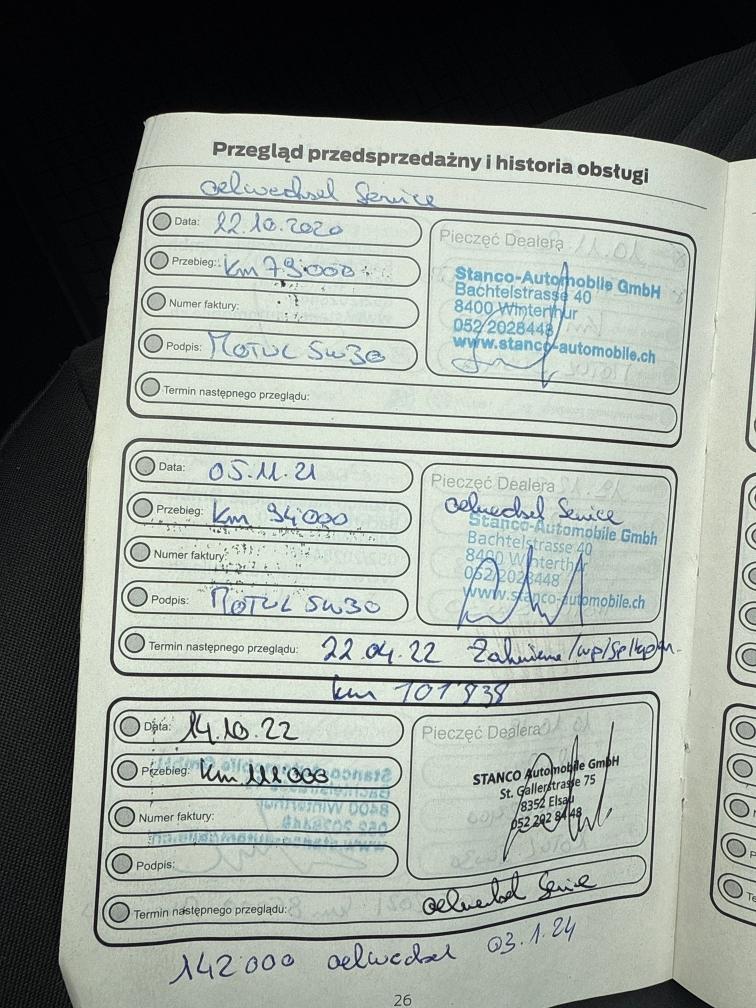 Przegląd przedsprzedażny i historia obsługi
oelwechsel Service
Data: 22.10.2020
Przebieg: km 79'000
Numer faktury:
Podpis: MOTUL 5W30
Termin następnego przeglądu:
Pieczęć Dealera
Stanco-Automobile GmbH
Bachtelstrasse 40
8400 Winterthur
052/2028448
www.stanco-automobile.ch
Data: 05.11.21
Przebieg: km 94000
Numer faktury:
Podpis: MOTUL 5W30
Pieczęć Dealera
oelwechsel Service
Stanco-Automobile Gmbh
Bachtelstrasse 40
8400 Winterthur
052/2028448
www.stanco-automobile.ch
Termin następnego przeglądu: 22.04.22 Zahnriemen/wp/
km 101'838
Data: 14.10.22
Przebieg: km 111'000
Numer faktury:
Podpis:
Pieczęć Dealera
STANCO Automobile GmbH
St. Gallerstrasse 75
8352 Elsau
052 202 84 48
Termin następnego przeglądu: oelwechsel Service
142'000 oelwechsel 03.1.24
26